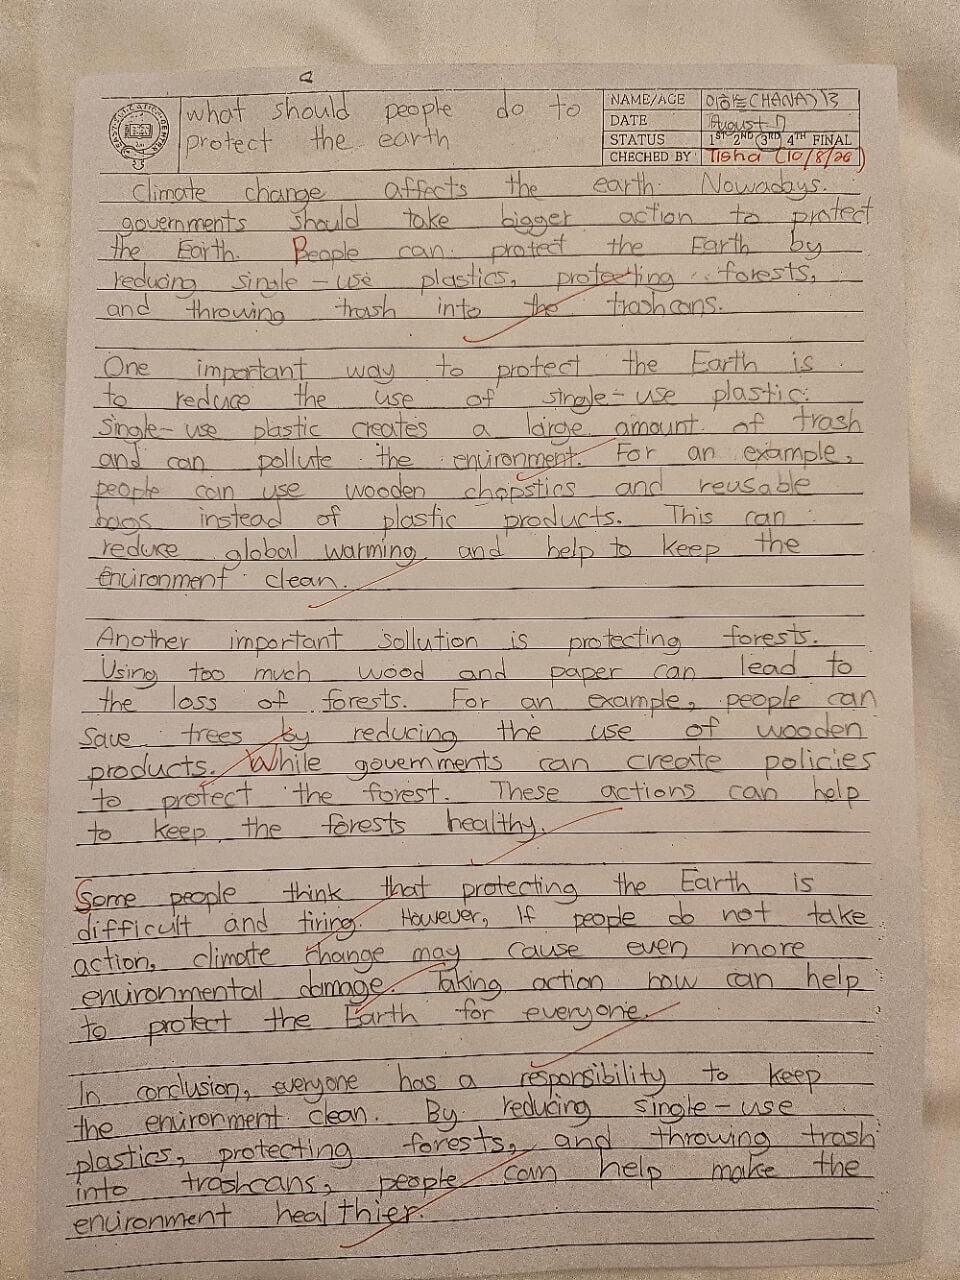 what should people do to
protect the earth
NAME/AGE (HANA) 13
DATE August 7
STATUS 1ST 2ND 3RD 4TH FINAL
CHECHED BY: Tisha (10/8/26)
Climate change affects the earth. Nowadays.
governments should take bigger action to protect
the Earth. People can protect the Earth by
reducing single-use plastics, protecting forests,
and throwing trash into the trashcans.
One important way to protect the Earth is
to reduce the use of single-use plastic.
single-use plastic creates a large amount of trash
and can pollute the environment. For an example,
people can use wooden chopstics and reusable
bags instead of plastic products. This can
reduce global warming and help to keep the
environment clean.
Another important sollution is protecting forests.
Using too much wood and paper can lead to
the loss of forests. For an example, people can
save trees by reducing the use of wooden
products. While governments can create policies
to protect the forest. These actions can help
to keep the forests healthy.
Some people think that protecting the Earth is
difficult and tiring. However, If people do not take
action, climate change may cause even more
environmental damage. Taking action now can help
to protect the Earth for everyone.
In conclusion, everyone has a responsibility to keep
the environment clean. By reducing single-use
plastics, protecting forests, and throwing trash
into trashcans, people can help make the
environment healthier.